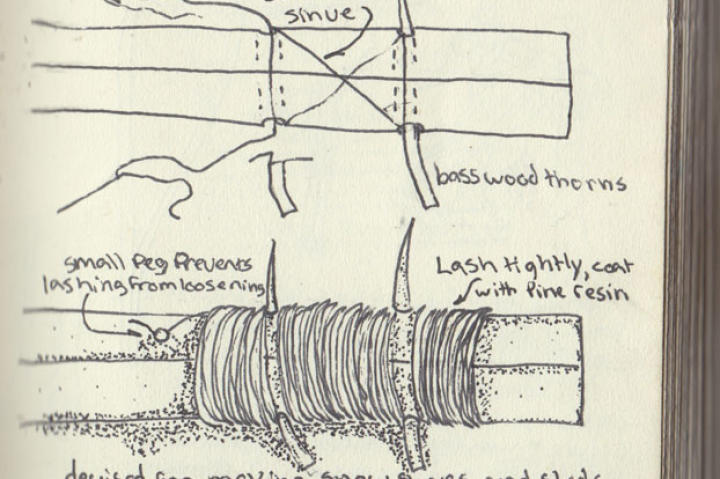 sinue
basswood thorns
small Peg Prevents
lashing from loosening
Lash tightly, coat
with Pine resin